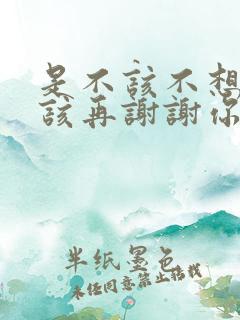 是不该不想
该再謝謝你
半纸墨色
未经同意禁止搭载